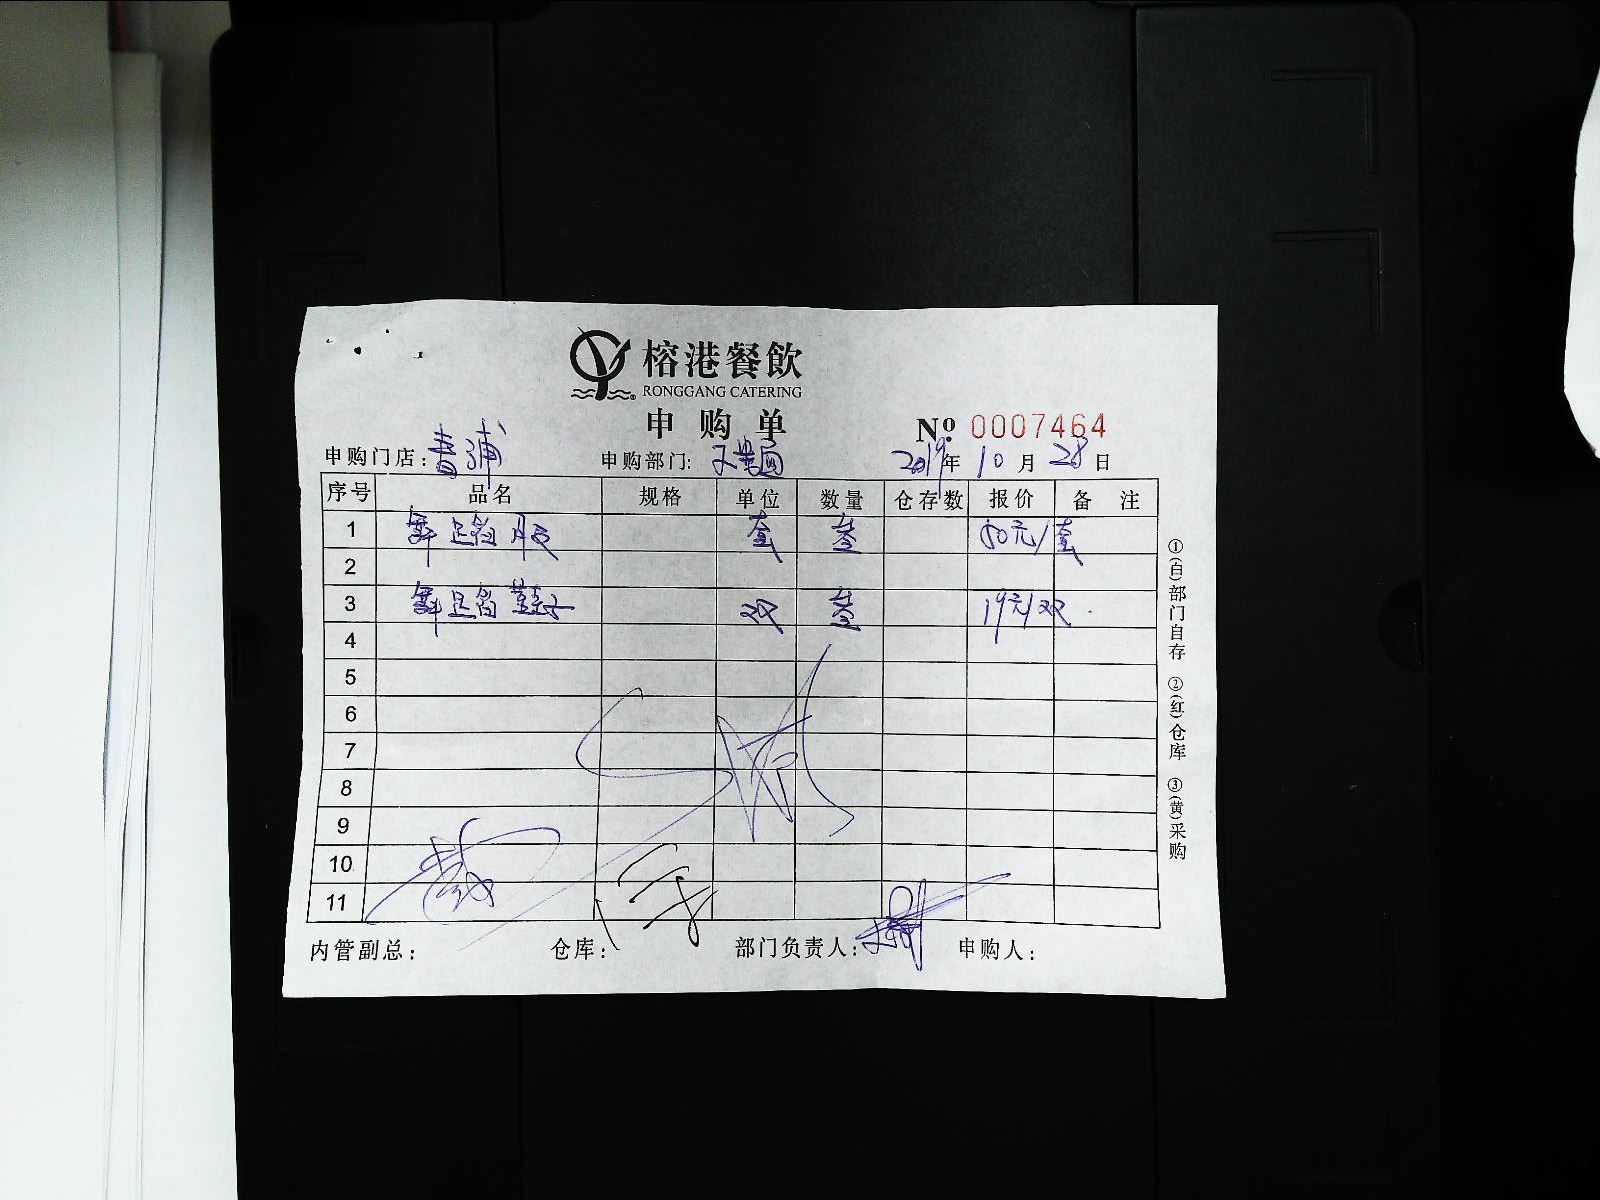 榕港餐飲
RONGGANG CATERING
申购单
№ 0007464
申购门店：青浦 申购部门： 2019年10月28日
序号 品名 规格 单位 数量 仓存数 报价 备注
1 套 叁 50元/套
2
3 双 叁 19元/双
4
5
6
7
8
9
10
11
内管副总： 仓库： 部门负责人： 申购人：
①(白)部门自存 ②(红)仓库 ③(黄)采购